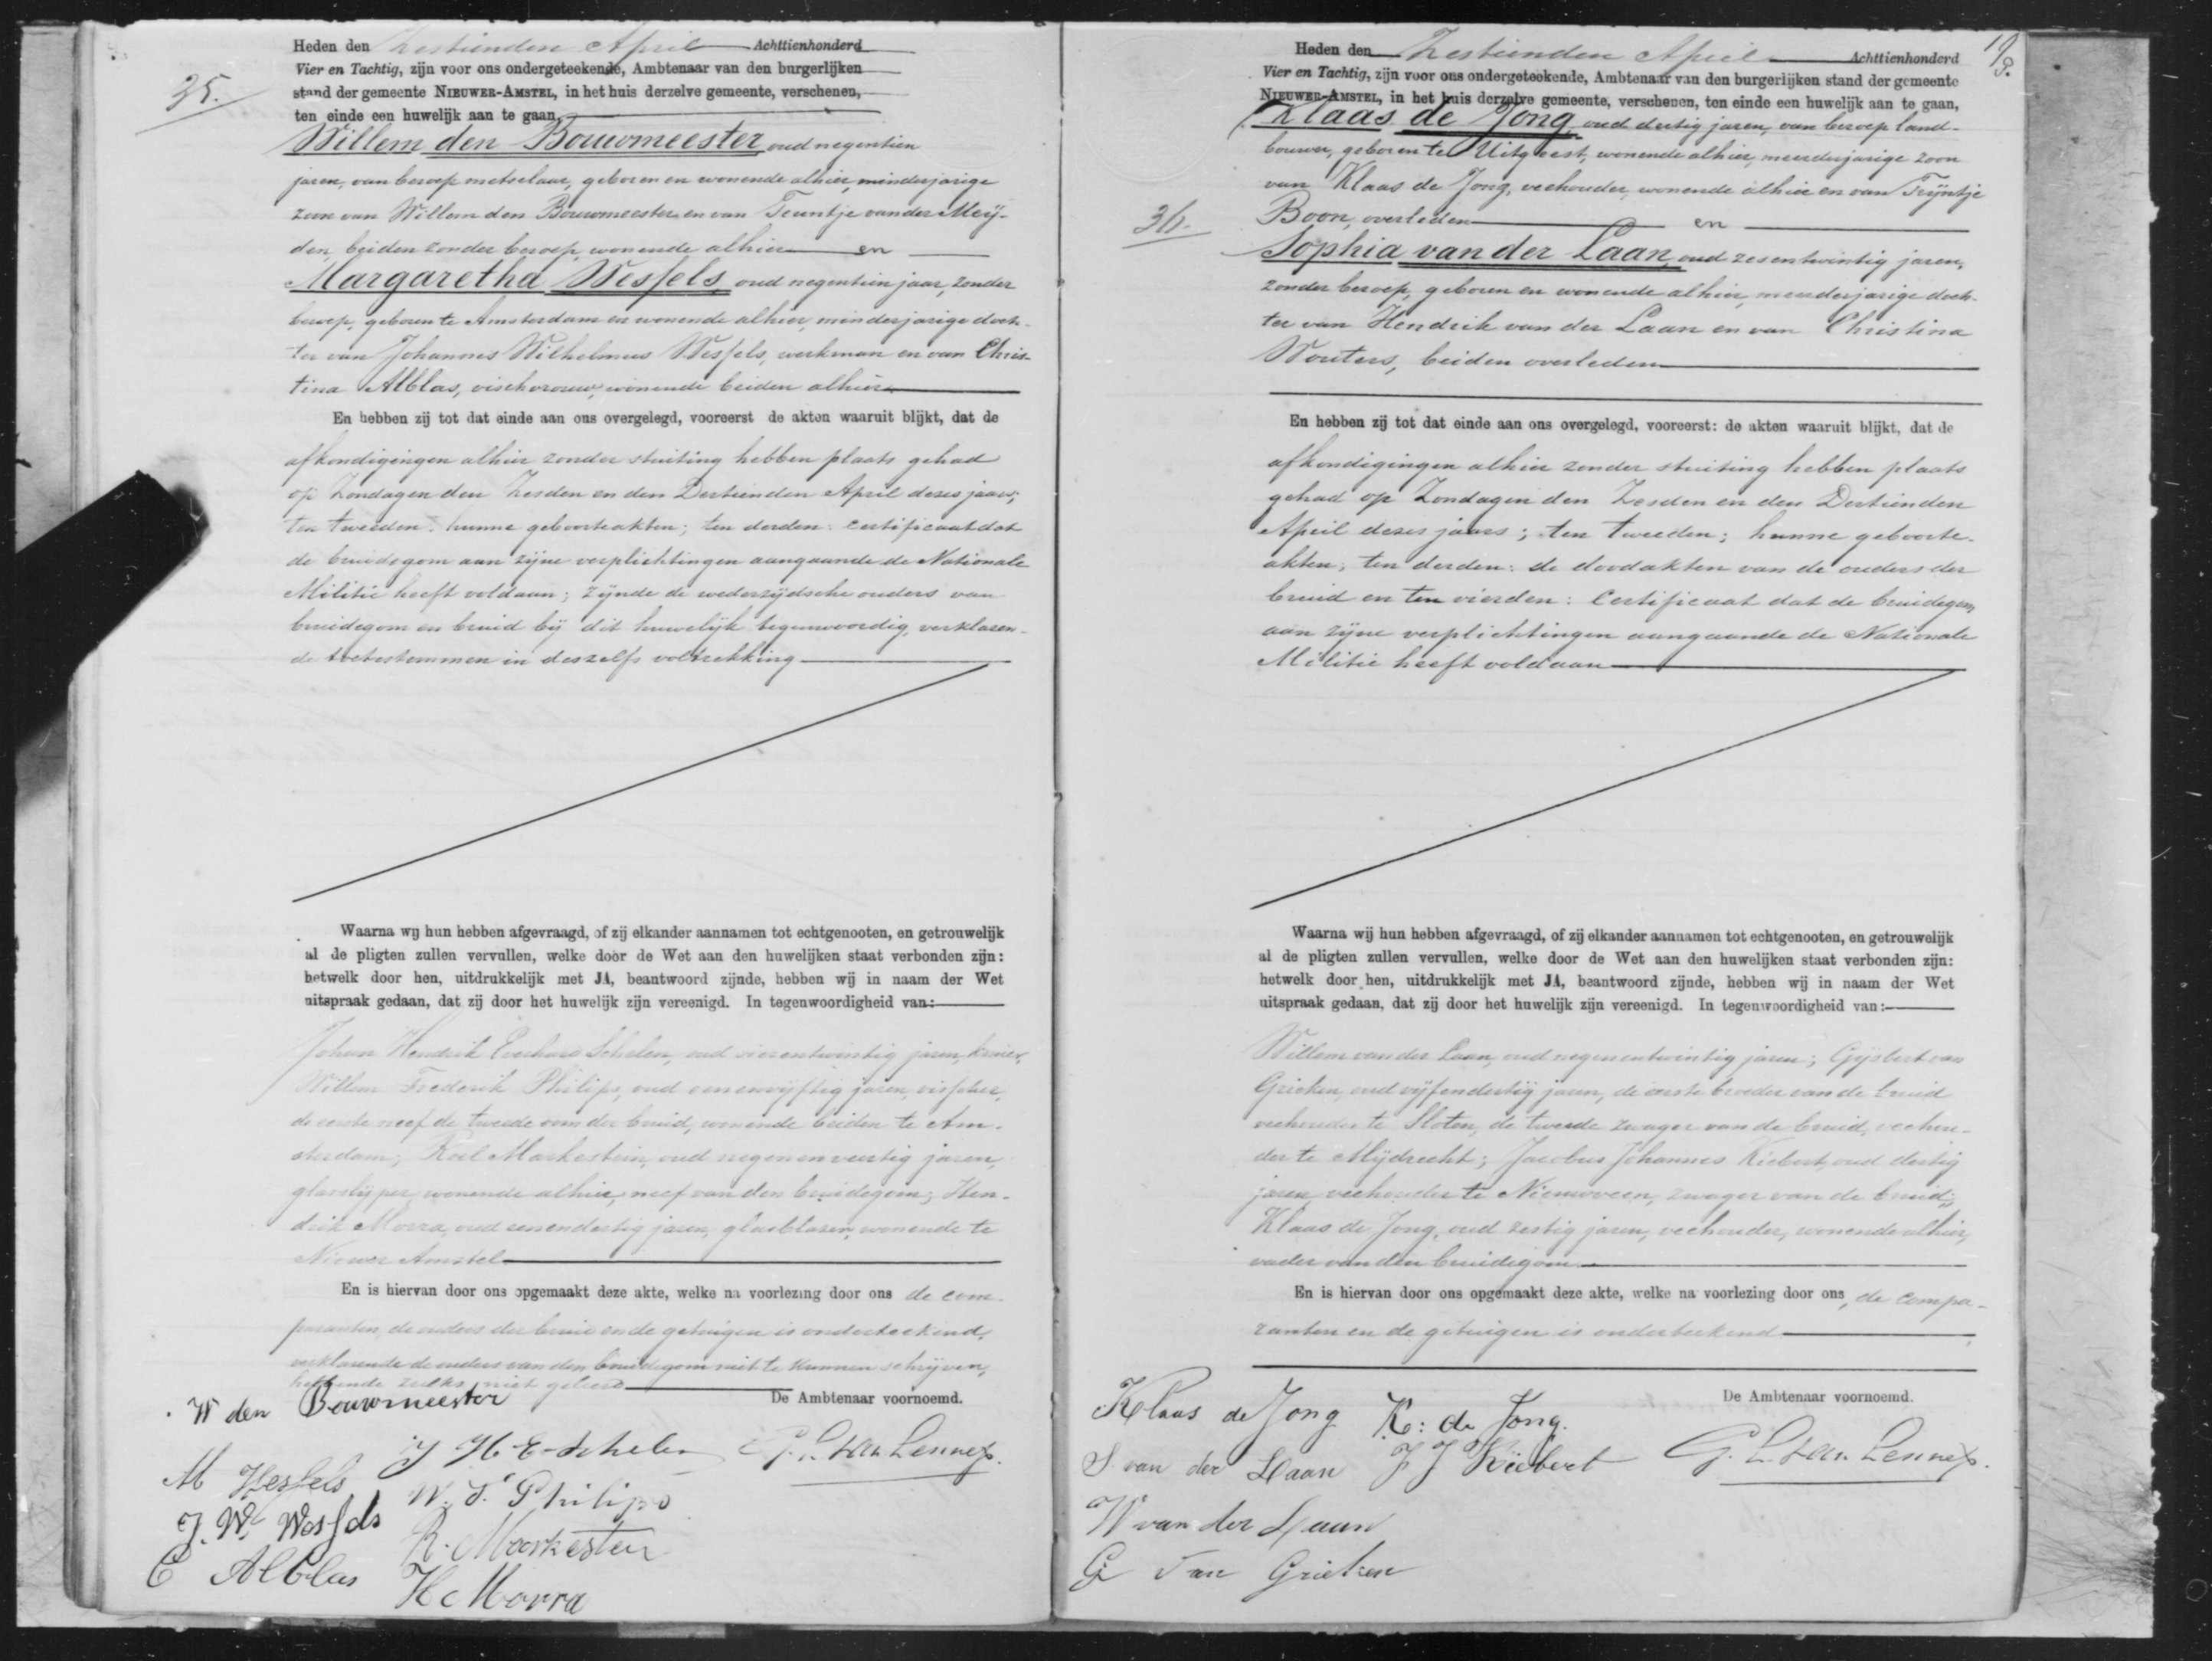 35.
Heden den Zestienden April Achttienhonderd
Vier en Tachtig, zijn voor ons ondergeteekende, Ambtenaar van den burgerlijken
stand der gemeente NIEUWER-AMSTEL, in het huis derzelve gemeente, verschenen,
ten einde een huwelijk aan te gaan,
Willem den Bouwmeester oud negentien
jaren, van beroep metselaar, geboren en wonende alhier, minderjarige
zoon van Willem den Bouwmeester en van Teuntje van der Meij-
den, beiden zonder beroep, wonende alhier en
Margaretha Wessels, oud negentien jaar, zonder
beroep, geboren te Amsterdam en wonende alhier, minderjarige doch-
ter van Johannes Wilhelmus Wessels, werkman en van Chris-
tina Alblas, vischvrouw, wonende beiden alhier
En hebben zij tot dat einde aan ons overgelegd, vooreerst de akten waaruit blijkt, dat de
afkondigingen alhier zonder stuiting hebben plaats gehad
op Zondagen den Zesden en den Dertienden April dezes jaars;
ten tweeden: hunne geboorteakten; ten derden: certificaat dat
de bruidegom aan zijne verplichtingen aangaande de Nationale
Militie heeft voldaan; zijnde de wederzijdsche ouders van
bruidegom en bruid bij dit huwelijk tegenwoordig, verklaren-
de toetestemmen in deszelfs voltrekking
Waarna wij hun hebben afgevraagd, of zij elkander aannamen tot echtgenooten, en getrouwelijk
al de pligten zullen vervullen, welke door de Wet aan den huwelijken staat verbonden zijn:
hetwelk door hen, uitdrukkelijk met JA, beantwoord zijnde, hebben wij in naam der Wet
uitspraak gedaan, dat zij door het huwelijk zijn vereenigd. In tegenwoordigheid van:
Johan Hendrik Everhard Schelen, oud vierentwintig jaren, kruier,
Willem Frederik Philips, oud eenenvijftig jaren, visscher,
de eerste neef de tweede oom der bruid, wonende beiden te Am-
sterdam; Roel Markestein, oud negenenveertig jaren,
glasslijper, wonende alhier, neef van den bruidegom; Hen-
drik Morra, oud eenendertig jaren, glasblazer, wonende te
Nieuwer Amstel
En is hiervan door ons opgemaakt deze akte, welke na voorlezing door ons de com-
paranten, de ouders der bruid en de getuigen is onderteekend,
verklarende de ouders van den bruidegom niet te kunnen schrijven,
hebbende zulks niet geleerd
De Ambtenaar voornoemd.
W den Bouwmeester
J H E Schelen G. L. van Lennep.
M Wessels
W. F. Philips
J. W. Wessels
R. Markestein
C Alblas
H Morra
19.
36.
Heden den Zestienden April Achttienhonderd
Vier en Tachtig, zijn voor ons ondergeteekende, Ambtenaar van den burgerlijken stand der gemeente
NIEUWER-AMSTEL, in het huis derzelve gemeente, verschenen, ten einde een huwelijk aan te gaan,
Klaas de Jong, oud dertig jaren, van beroep land-
bouwer, geboren te Uitgeest, wonende alhier, meerderjarige zoon
van Klaas de Jong, veehouder, wonende alhier en van Trijntje
Boon, overleden en
Sophia van der Laan, oud zesentwintig jaren,
zonder beroep, geboren en wonende alhier, meerderjarige doch-
ter van Hendrik van der Laan en van Christina
Wouters, beiden overleden
En hebben zij tot dat einde aan ons overgelegd, vooreerst: de akten waaruit blijkt, dat de
afkondigingen alhier zonder stuiting hebben plaats
gehad op Zondagen den Zesden en den Dertienden
April dezes jaars; ten tweeden; hunne geboorte-
akten; ten derden: de doodakten van de ouders der
bruid en ten vierden: Certificaat dat de bruidegom
aan zijne verplichtingen aangaande de Nationale
Militie heeft voldaan
Waarna wij hun hebben afgevraagd, of zij elkander aannamen tot echtgenooten, en getrouwelijk
al de pligten zullen vervullen, welke door de Wet aan den huwelijken staat verbonden zijn:
hetwelk door hen, uitdrukkelijk met JA, beantwoord zijnde, hebben wij in naam der Wet
uitspraak gedaan, dat zij door het huwelijk zijn vereenigd. In tegenwoordigheid van:
Willem van der Laan, oud negenentwintig jaren; Gijsbert van
Grieken, oud vijfendertig jaren, de eerste broeder van de bruid
veehouder te Sloten, de tweede zwager van de bruid, veehou-
der te Mijdrecht; Jacobus Johannes Kiebert, oud dertig
jaren, veehouder te Nieuwveen, zwager van de bruid;
Klaas de Jong, oud zestig jaren, veehouder, wonende alhier,
vader van den bruidegom
En is hiervan door ons opgemaakt deze akte, welke na voorlezing door ons, de compa-
ranten en de getuigen is onderteekend
De Ambtenaar voornoemd.
Klaas de Jong K: de Jong.
S. van der Laan J J Kiebert G. L. van Lennep.
W van der Laan
G van Grieken